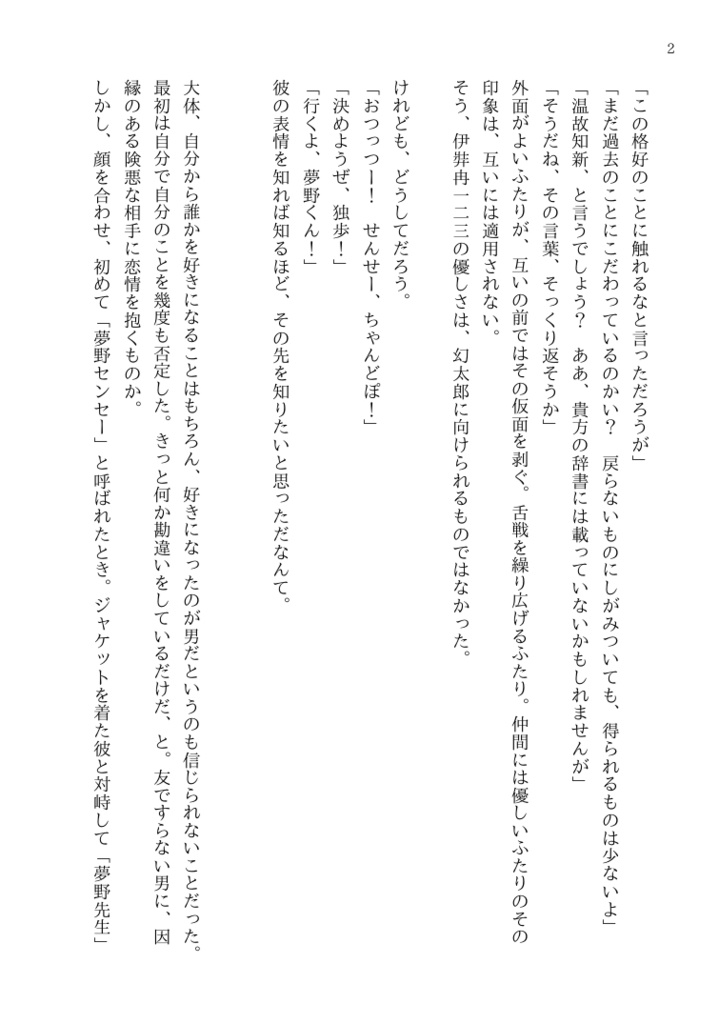 2
「この格好のことに触れるなと言っただろうが」
「まだ過去のことにこだわっているのかい？　戻らないものにしがみついても、得られるものは少ないよ」
「温故知新、と言うでしょう？　ああ、貴方の辞書には載っていないかもしれませんが」
「そうだね、その言葉、そっくり返そうか」
外面がよいふたりが、互いの前ではその仮面を剥ぐ。舌戦を繰り広げるふたり。仲間には優しいふたりのその
印象は、互いには適用されない。
そう、伊弉冉一二三の優しさは、幻太郎に向けられるものではなかった。
けれども、どうしてだろう。
「おつっつー！　せんせー、ちゃんどぽ！」
「決めようぜ、独歩！」
「行くよ、夢野くん！」
彼の表情を知れば知るほど、その先を知りたいと思っただなんて。
大体、自分から誰かを好きになることはもちろん、好きになったのが男だというのも信じられないことだった。
最初は自分で自分のことを幾度も否定した。きっと何か勘違いをしているだけだ、と。友ですらない男に、因
縁のある険悪な相手に恋情を抱くものか。
しかし、顔を合わせ、初めて「夢野センセー」と呼ばれたとき。ジャケットを着た彼と対峙して「夢野先生」